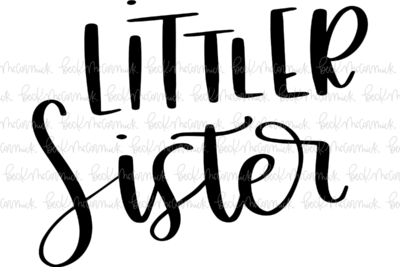 LiTTLER
Sister